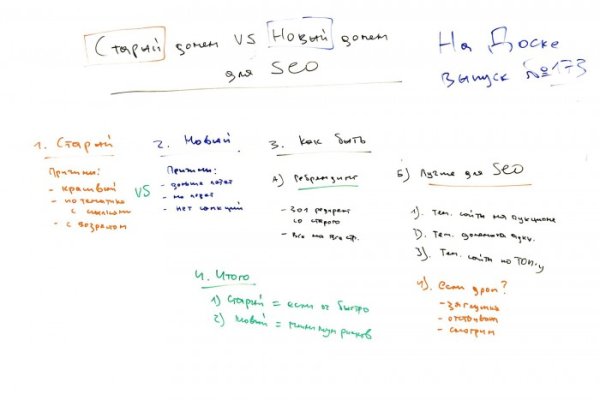 Старый домен VS Новый домен
для SEO
На Доске
выпуск №173
1. Старый
Причины:
- красивый
- по тематике
с ссылками
- с возрастом
VS
2. Новый
Причины:
- дольше
- нет санкций
3. Как быть
А) Ребрендинг
- 301 редирект
со старого
- Все на все стр.
Б) Лучше для SEO
1). Тем. сайты на аукционе
2). Тем. домены
3). Тем. сайты по ТОП-у
4). Если дроп?
- загнулся
- отстойник
- смотрим
4. Итого
1) Старый = если ог быстро
2) Новый = минимум рисков